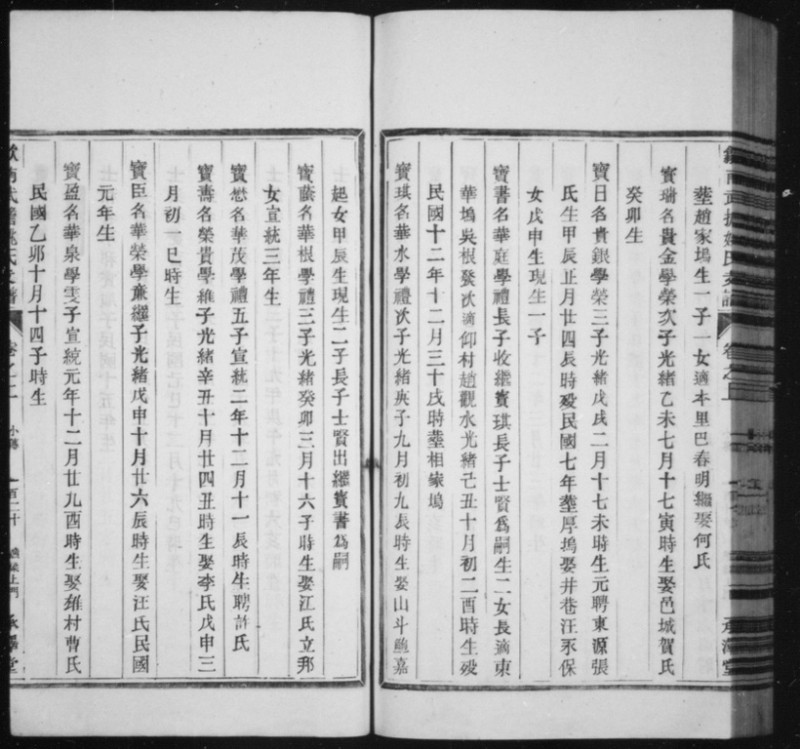 塟趙家塢生一子一女適本里巴春明繼娶何氏
寳瑞名貴金學榮次子光緒乙未七月十七寅時生娶邑城賀氏
癸卯生
寳日名貴銀學榮三子光緒戊戌二月十七未時生元聘東源張
氏生甲辰正月廿四辰時殁民國七年塟厚塢娶井巷汪永保
女戊申生現生一子
寳書名華庭學禮長子收繼寳琪長子士賢爲嗣生二女長適東
華塢吳根發次適仰村趙觀水光緒己丑十月初二酉時生殁
民國十二年十二月三十戌時塟相塚塢
寳琪名華水學禮次子光緒庚子九月初九辰時生娶山斗 嘉
起女甲辰生現生二子長子士賢出繼寳書爲嗣
寳蔭名華根學禮三子光緒癸卯三月十六子時生娶江氏立邦
女宣統三年生
寳懋名華茂學禮五子宣統二年十二月十一辰時生聘許氏
寳壽名榮貴學維子光緒辛丑十月廿四丑時生娶李氏戊申三
月初一巳時生
寳臣名華榮學 繼子光緒戊申十月廿六辰時生娶汪氏民國
元年生
寳盈名華泉學雯子宣統元年十二月廿九酉時生娶雄村曹氏
民國乙卯十月十四子時生
卷之上 小傳 一百二十 承澤堂